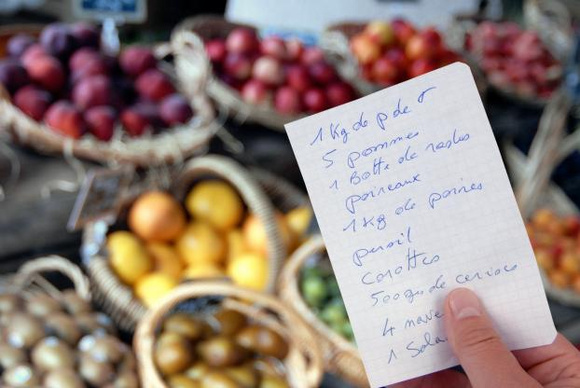 1 Kg de p de r
5 pommes
1 Botte de radis
poireaux
1 Kg de poires
persil
carottes
500g de cerises
4 nave
1 Sala